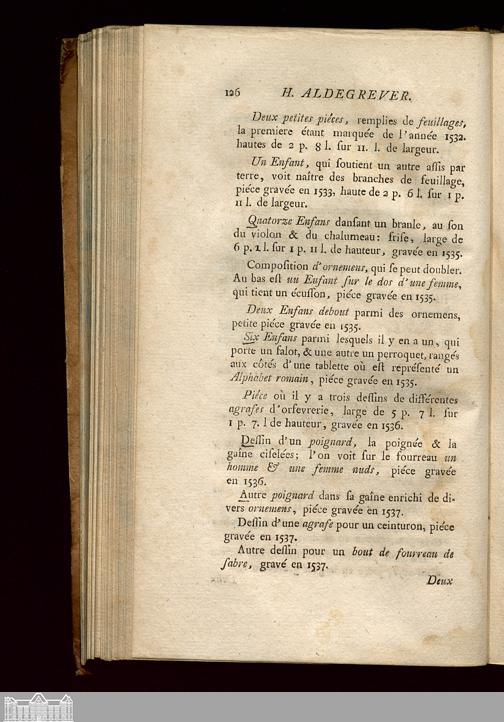 126 H. ALDEGREVER.
Deux petites piéces, remplies de feuillages,
la premiere étant marquée de l'année 1532.
hautes de 2 p. 8 l. sur 11. l. de largeur.
Un Enfant, qui soutient un autre assis par
terre, voit naître des branches de feuillage,
piéce gravée en 1533, haute de 2 p. 6 l. sur 1 p.
11 l. de largeur.
Quatorze Enfans dansant un branle, au son
du violon & du chalumeau: frise, large de
6 p. 2 l. sur 1 p. 11 l. de hauteur, gravée en 1535.
Composition d'ornemens, qui se peut doubler.
Au bas est un Enfant sur le dos d'une femme,
qui tient un écusson, piéce gravée en 1535.
Deux Enfans debout parmi des ornemens,
petite piéce gravée en 1535.
Six Enfans parmi lesquels il y en a un, qui
porte un falot, & une autre un perroquet, rangés
aux côtés d'une tablette où est représenté un
Alphabet romain, piéce gravée en 1535.
Piéce où il y a trois dessins de différentes
agrafes d'orfevrerie, large de 5 p. 7 l. sur
1 p. 7. l de hauteur, gravée en 1536.
Dessin d'un poignard, la poignée & la
gaîne ciselées; l'on voit sur le fourreau un
homme & une femme nuds, piéce gravée
en 1536.
Autre poignard dans sa gaîne enrichi de di-
vers ornemens, piéce gravée en 1537.
Dessin d'une agrafe pour un ceinturon, piéce
gravée en 1537.
Autre dessin pour un bout de fourreau de
sabre, gravé en 1537.
Deux